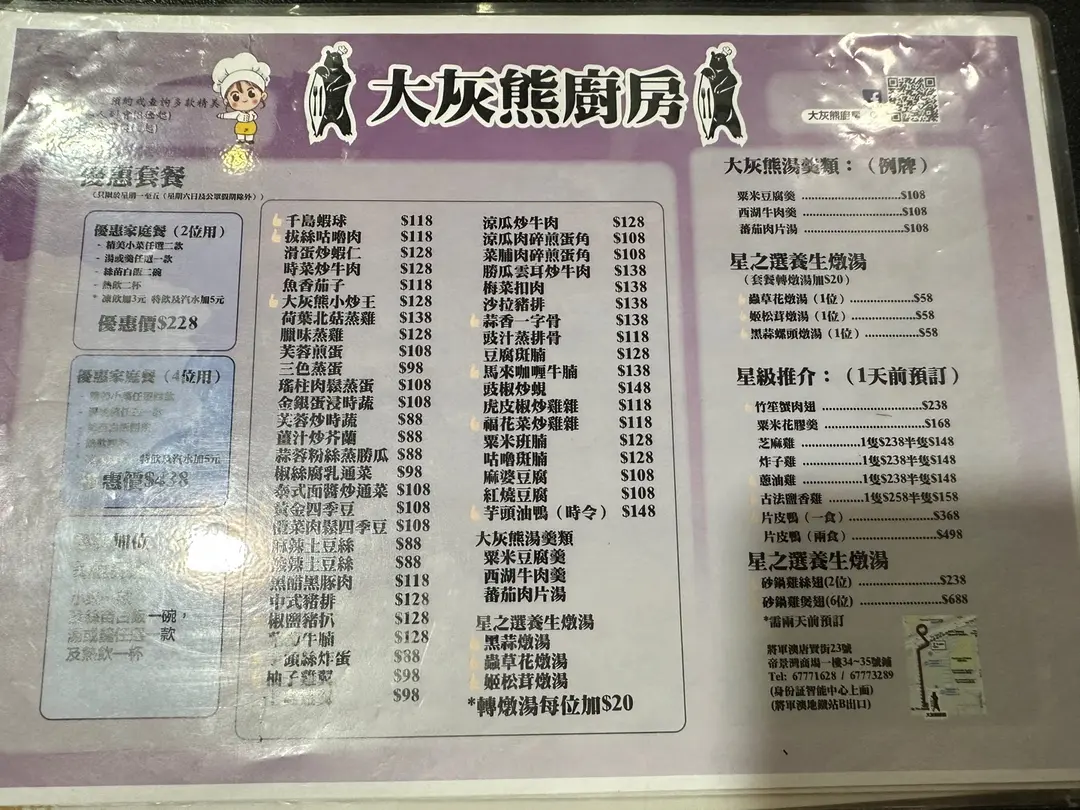 大灰熊廚房
大灰熊廚房
預約或查詢多款精美
優惠套餐
（只限於星期一至五（星期六日及公眾假期除外））
優惠家庭餐（2位用）
- 精美小菜任選二款
- 湯或羹任選一款
- 絲苗白飯二碗
- 熱飲二杯
* 凍飲加3元 特飲及汽水加5元
優惠價$228
優惠家庭餐（4位用）
特飲及汽水加5元
優惠價$438
加位
一碗，
湯或羹任選一款
及熱飲一杯
千島蝦球 $118
拔絲咕嚕肉 $118
滑蛋炒蝦仁 $128
時菜炒牛肉 $128
魚香茄子 $118
大灰熊小炒王 $128
荷葉北菇蒸雞 $138
臘味蒸雞 $128
芙蓉煎蛋 $108
三色蒸蛋 $98
瑤柱肉鬆蒸蛋 $108
金銀蛋浸時蔬 $108
芙蓉炒時蔬 $88
薑汁炒芥蘭 $88
蒜蓉粉絲蒸勝瓜 $88
椒絲腐乳通菜 $98
泰式面醬炒通菜 $108
黃金四季豆 $108
欖菜肉鬆四季豆 $108
麻辣土豆絲 $88
土豆絲 $88
黑醋黑豚肉 $118
中式豬排 $128
椒鹽豬扒 $128
牛腩 $128
頭絲炸蛋 $88
柚子雞翼 $98
$98
涼瓜炒牛肉 $128
涼瓜肉碎煎蛋角 $108
菜脯肉碎煎蛋角 $108
勝瓜雲耳炒牛肉 $138
梅菜扣肉 $138
沙拉豬排 $138
蒜香一字骨 $138
豉汁蒸排骨 $118
豆腐斑腩 $128
馬來咖喱牛腩 $138
豉椒炒蜆 $148
虎皮椒炒雞雜 $118
福花菜炒雞雜 $118
粟米斑腩 $128
咕嚕斑腩 $128
麻婆豆腐 $108
紅燒豆腐 $108
芋頭油鴨（時令） $148
大灰熊湯羹類
粟米豆腐羹
西湖牛肉羹
蕃茄肉片湯
星之選養生燉湯
黑蒜燉湯
蟲草花燉湯
姬松茸燉湯
*轉燉湯每位加$20
大灰熊湯羹類：（例牌）
粟米豆腐羹 ......................$108
西湖牛肉羹 ......................$108
蕃茄肉片湯 ......................$108
星之選養生燉湯
（套餐轉燉湯加$20）
蟲草花燉湯（1位）..................$58
姬松茸燉湯（1位）..................$58
黑蒜螺頭燉湯（1位）................$58
星級推介：（1天前預訂）
竹笙蟹肉翅 ......................$238
粟米花膠羹 ......................$168
芝麻雞 ..............1隻$238半隻$148
炸子雞 ..............1隻$238半隻$148
蔥油雞 ..............1隻$238半隻$148
古法鹽香雞 ..........1隻$258半隻$158
片皮鴨（一食）......................$368
片皮鴨（兩食）......................$498
星之選養生燉湯
砂鍋雞絲翅(2位) ....................$238
砂鍋雞煲翅(6位) ....................$688
*需兩天前預訂
將軍澳唐賢街23號
帝景灣商場一樓34~35號鋪
Tel: 67771628 / 67773289
(身份証智能中心上面)
(將軍澳地鐵站B出口)